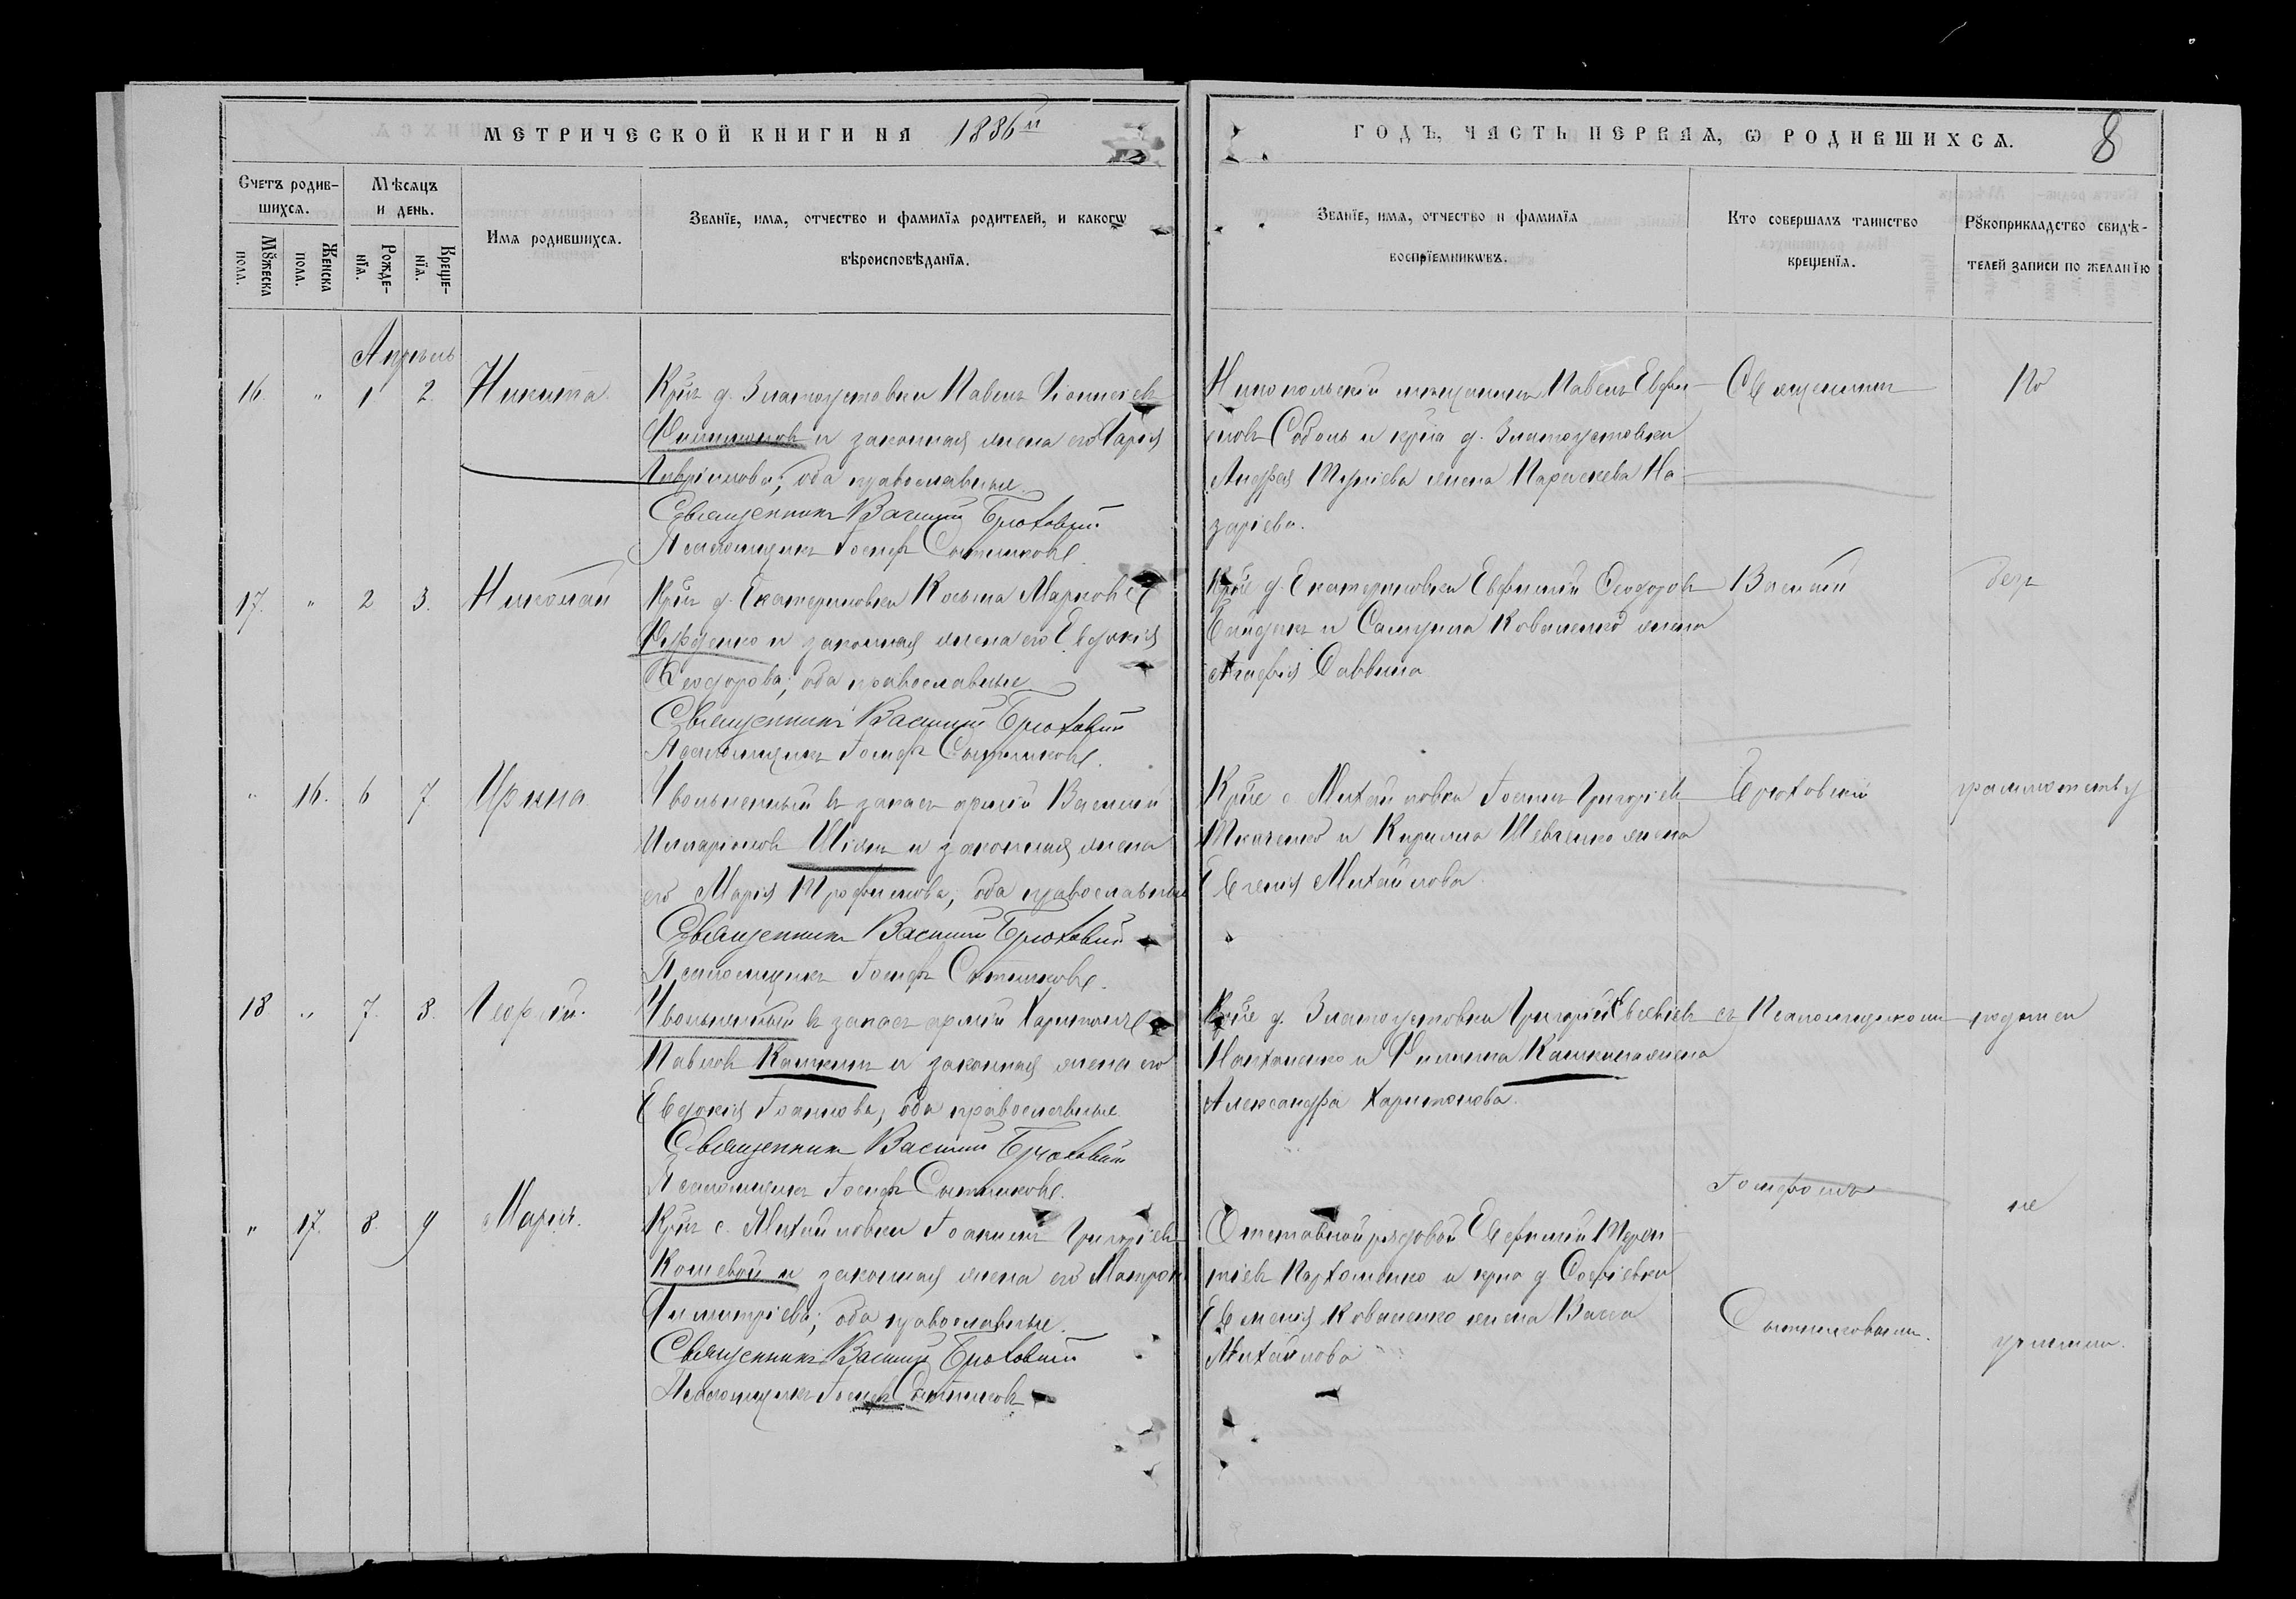 МЕТРИЧЕСКОЙ КНИГИ НА 1886й
ГОДЪ, ЧАСТЬ ПЕРВАЯ, Ѡ РОДИВШИХСѦ.
8
Счетъ родив-
шихсѧ.
Мѣсѧцъ
и день.
Имѧ родившихсѧ.
Званїе, имѧ, отчество и фамилїѧ родителей, и какогѡ
вѣроисповѣданїѧ.
Мꙋжеска
пола.
Женска
пола.
Рожде-
нїѧ.
Креще-
нїѧ.
Званїе, имѧ, отчество и фамилїѧ
воспрїемникѡвъ.
Кто совершалъ таинство
крещенїѧ.
Рꙋкоприкладство свидѣ-
телей записи по желанїю
Апрѣль
16 " 1 2 Никита
Крнъ д. Златоустовки Павелъ
и законная жена его Дарія
оба православные.
Священникъ Василій Брюховскій
Псаломщикъ Іосифъ Сытниковъ
Никопольскій мѣщанинъ Павелъ Ефи-
мовъ Соболь и крна д. Златоустовки
Андрея жена Параскева На-
заріева.
Священникъ
По
17. " 2 3. Николай
Крнъ д. Екатериновки Косьма Марковъ
Руденко и законная жена его Евдокія
Ѳеодорова; оба православные
Священникъ Василій Брюховскій
Псаломщикъ Іосифъ Сытниковъ.
Крне д. Екатериновки Евфимій Ѳеодоровъ
и Самуила Коваленко жена
Агафія Саввина
Василій
безъ
" 16. 6 7 Ирина
Увольненный въ запасъ арміи Василій
Илларіоновъ Шіянъ и законная жена
его Марія Трофимова; оба православные
Священникъ Василій Брюховскій
Псаломщикъ Іосифъ Сытниковъ.
Крне с Михайловки Іоаннъ Григоріевъ
Ткаченко и Кирилла Шевченко жена
Евгенія Михайлова
Брюховскій
грамотству
18 " 7. 8. Георгій.
Увольненный въ запасъ арміи Харитонъ
Павловъ Кашкинъ и законная жена его
Евдокія Іоаннова; оба православные
Священникъ Василій Брюховскій
Псаломщикъ Іосифъ Сытниковъ.
Крне д. Златоустовки Григорій Евсевіевъ
и Филиппа Кашкина жена
Александра Харитонова.
съ Псаломщикомъ
Іосифомъ
" 17. 8. 9 Марія.
Крнъ с. Михайловки Іоакимъ Григоріевъ
Кошевой и законная жена его Матрона
Димитріева; оба православные.
Священникъ Василій Брюховскій
Псаломщикъ Іосифъ Сытниковъ
Отставной рядовой Евфимій Терен-
тіевъ Пархоменко и крна д Софіевки
Евменія Коваленко жена Васса
Михайлова
Сытниковымъ.
не